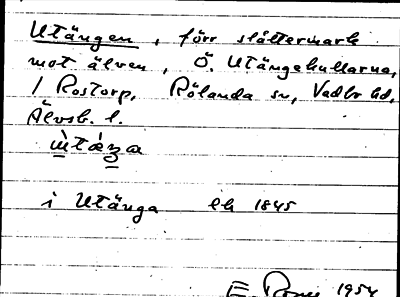 Utängen, förr slåttermark
mot älven, Ö. Utängekullarna,
/ Rostorp, Rölanda sn, Vedbo hd,
Älvsb. l.
i Utänga ek 1845
E. 1954